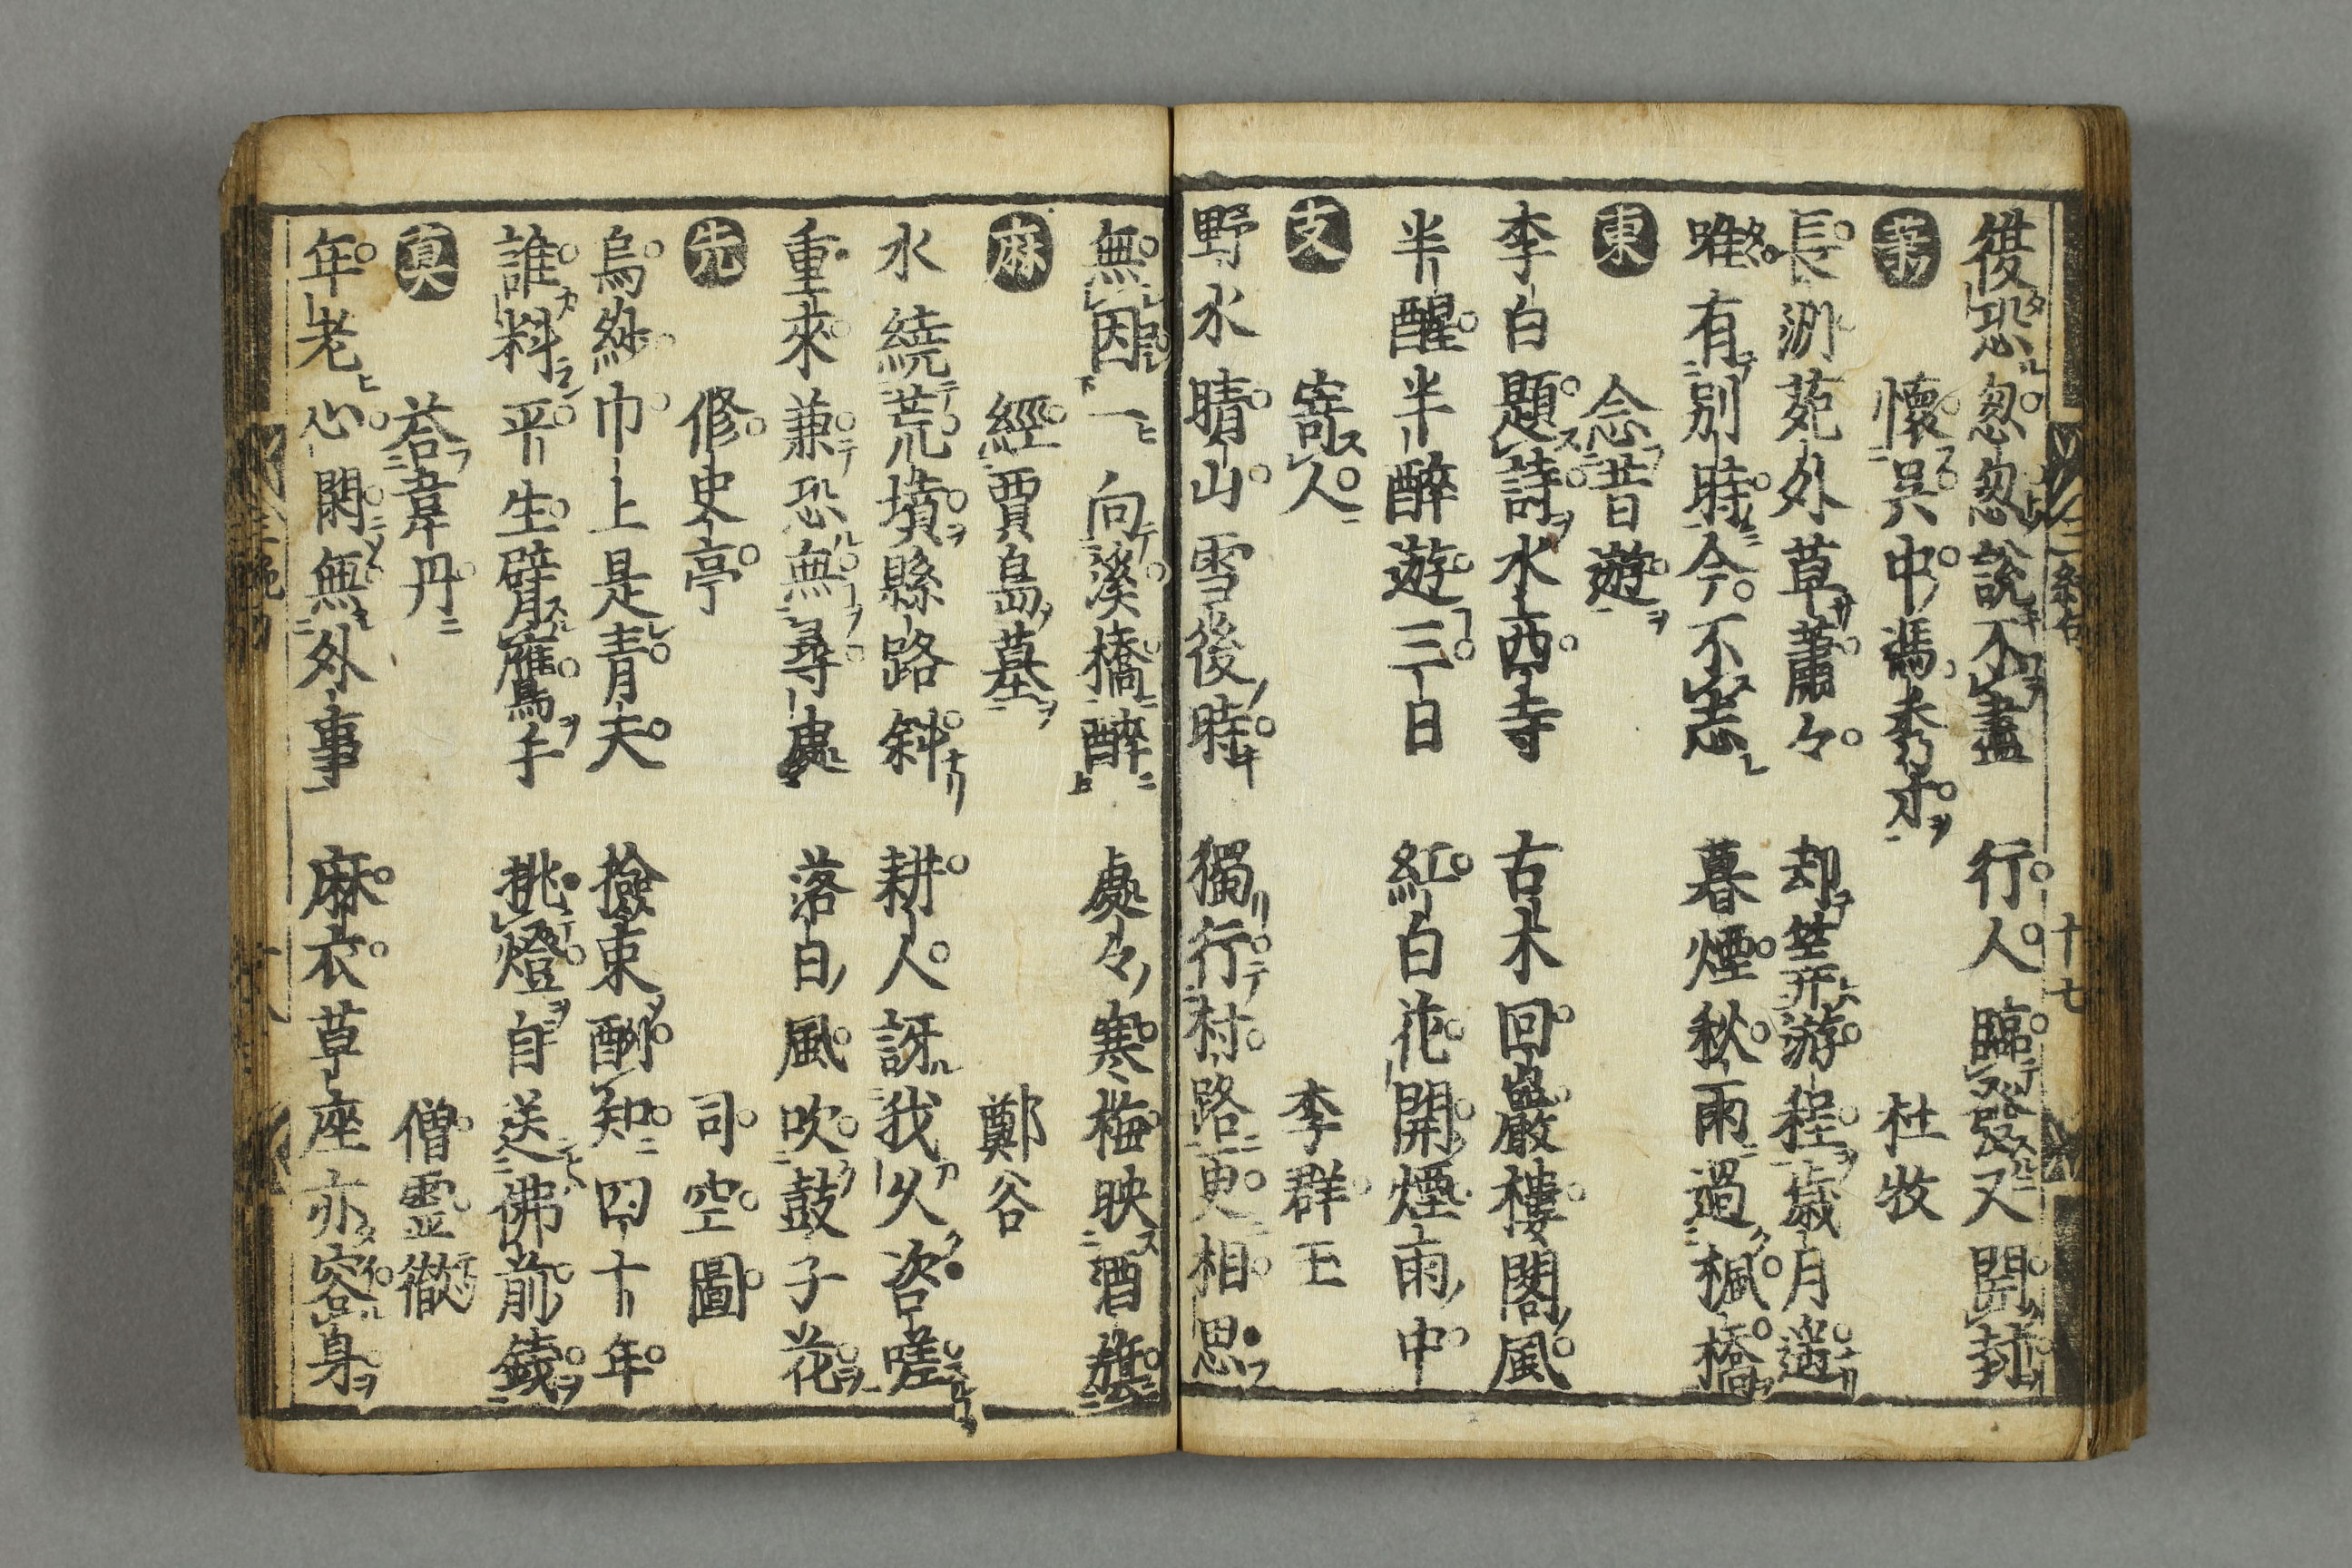 復恐怱怱説不盡　行人臨發又開封
蕭　懷呉中馮秀才　杜牧
長洲苑外草蕭々　却筭游程歳月遥
唯有別時今不忘　暮煙秋雨過楓橋
東　念昔遊
李白題詩水西寺　古木回巖樓閣風
半醒半醉遊三日　紅白花開煙雨中
支　寄人　李群玉
野水晴山雪後時　獨行村路更相思
無因一向溪橋醉　處々寒梅映酒旗
麻　經賈島墓　鄭谷
水繞荒墳縣路斜　耕人訝我久咨嗟
重來兼恐無尋處　落日風吹鼓子花
先　修史亭　司空圖
烏紗巾上是青天　撿束酬知四十年
誰料平生臂鷹手　挑燈自送佛前錢
真　荅韋丹　僧霊徹
年老心閑無外事　麻衣草座亦容身
十七